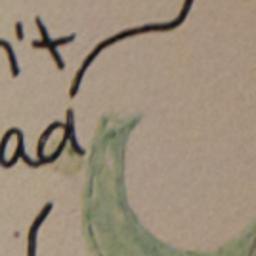 n't
ad